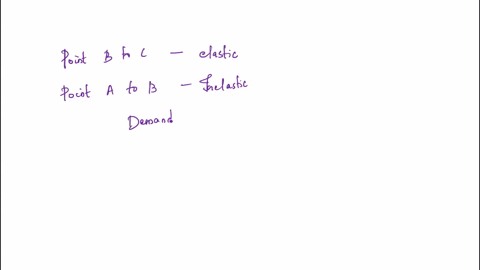 Point B to C — elastic
Point A to B — Inelastic
Demand